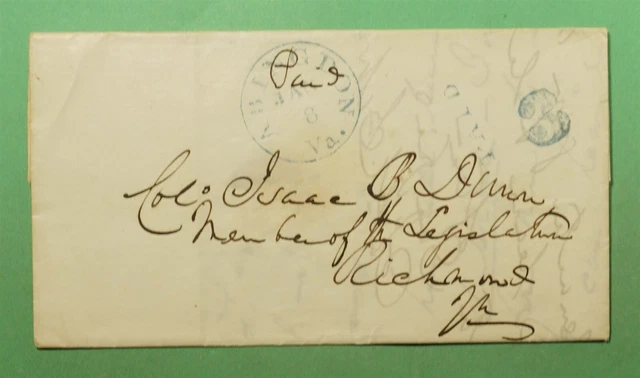 Paid
ABINGDON
JAN
8
Va.
PAID
Col° Isaac B Dunn
Member of the Legislature
Richmond
Va